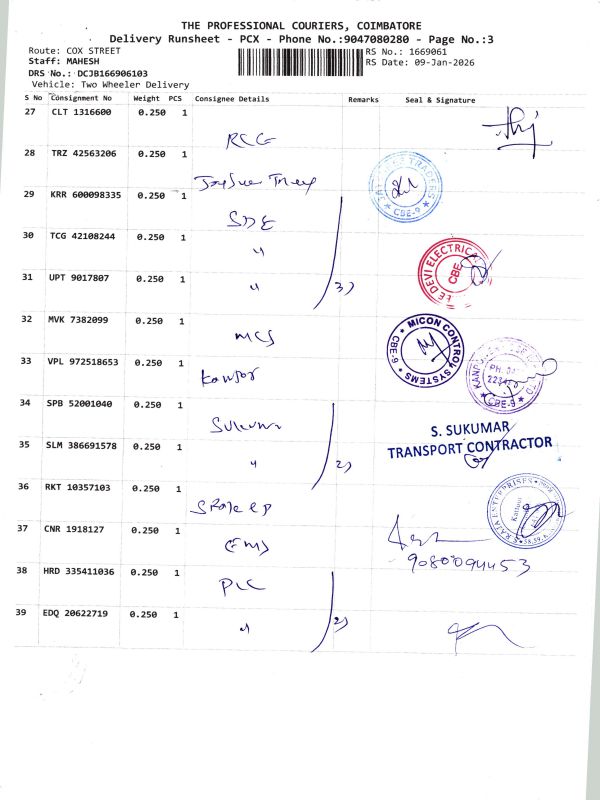 THE PROFESSIONAL COURIERS, COIMBATORE
Delivery Runsheet - PCX - Phone No.:9047080280 - Page No.:3
Route: COX STREET
RS No.: 1669061
Staff: MAHESH
RS Date: 09-Jan-2026
DRS No.: DCJB166906103
Vehicle: Two Wheeler Delivery
S No Consignment No Weight PCS Consignee Details Remarks Seal & Signature
27 CLT 1316600 0.250 1
RCG
28 TRZ 42563206 0.250 1
TRADERS
CBE-9
29 KRR 600098335 0.250 1
SDE
30 TCG 42108244 0.250 1
"
DEVI ELECTRICAL
CBE
31 UPT 9017807 0.250 1
" 3)
32 MVK 7382099 0.250 1
MCS
MICON CONTROL SYSTEMS
CBE-9
33 VPL 972518653 0.250 1
CBE-9
34 SPB 52001040 0.250 1
Sukumar
S. SUKUMAR
TRANSPORT CONTRACTOR
35 SLM 386691578 0.250 1
" 2)
36 RKT 10357103 0.250 1
RAJA ENTERPRISES
37 CNR 1918127 0.250 1
EMS
9080094453
38 HRD 335411036 0.250 1
PLC
39 EDQ 20622719 0.250 1
" 2)